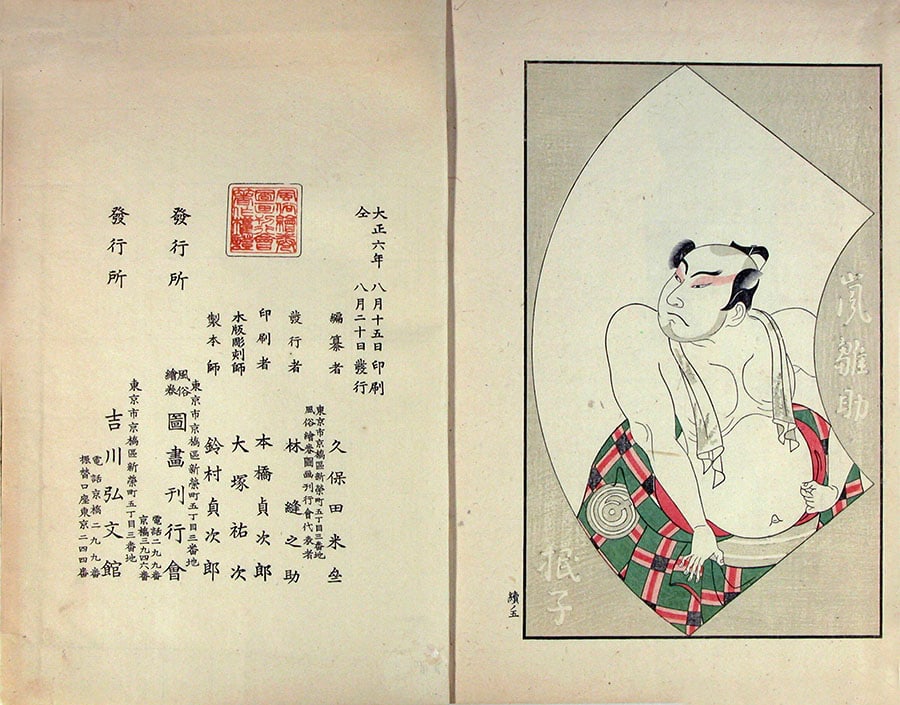 嵐雛助
珉子
續ノ五
大正六年 八月十五日 印刷
仝 八月二十日 發行
編纂者 久保田米斎
東京市京橋區新榮町五丁目三番地
風俗繪卷圖畫刊行會代表者
發行者 林縫之助
印刷者 本橋貞次郎
木版彫刻師 大塚祐次
製本師 鈴村貞次郎
東京市京橋區新榮町五丁目三番地
發行所 風俗繪卷 圖畫刊行會
電話二九九番
京橋三九四六番
東京市京橋區新榮町五丁目三番地
發行所 吉川弘文館
電話京橋二九九番
振替口座東京二四四番